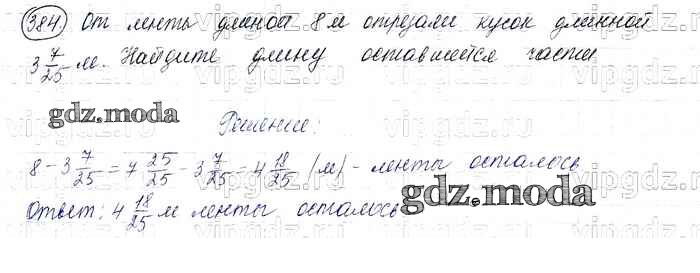 384. От ленты длиной 8 м отрезали кусок длинной
3 7/25 м. Найдите длину оставшейся части
gdz.moda
Решение:
8 - 3 7/25 = 7 25/25 - 3 7/25 = 4 18/25 (м) - ленты осталось
gdz.moda
Ответ: 4 18/25 м ленты осталось